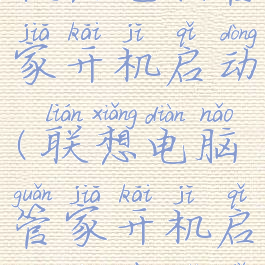 jiā kāi jī qǐ dòng
家开机启动
lián xiǎng diàn nǎo
(联想电脑
guǎn jiā kāi jī qǐ
管家开机启